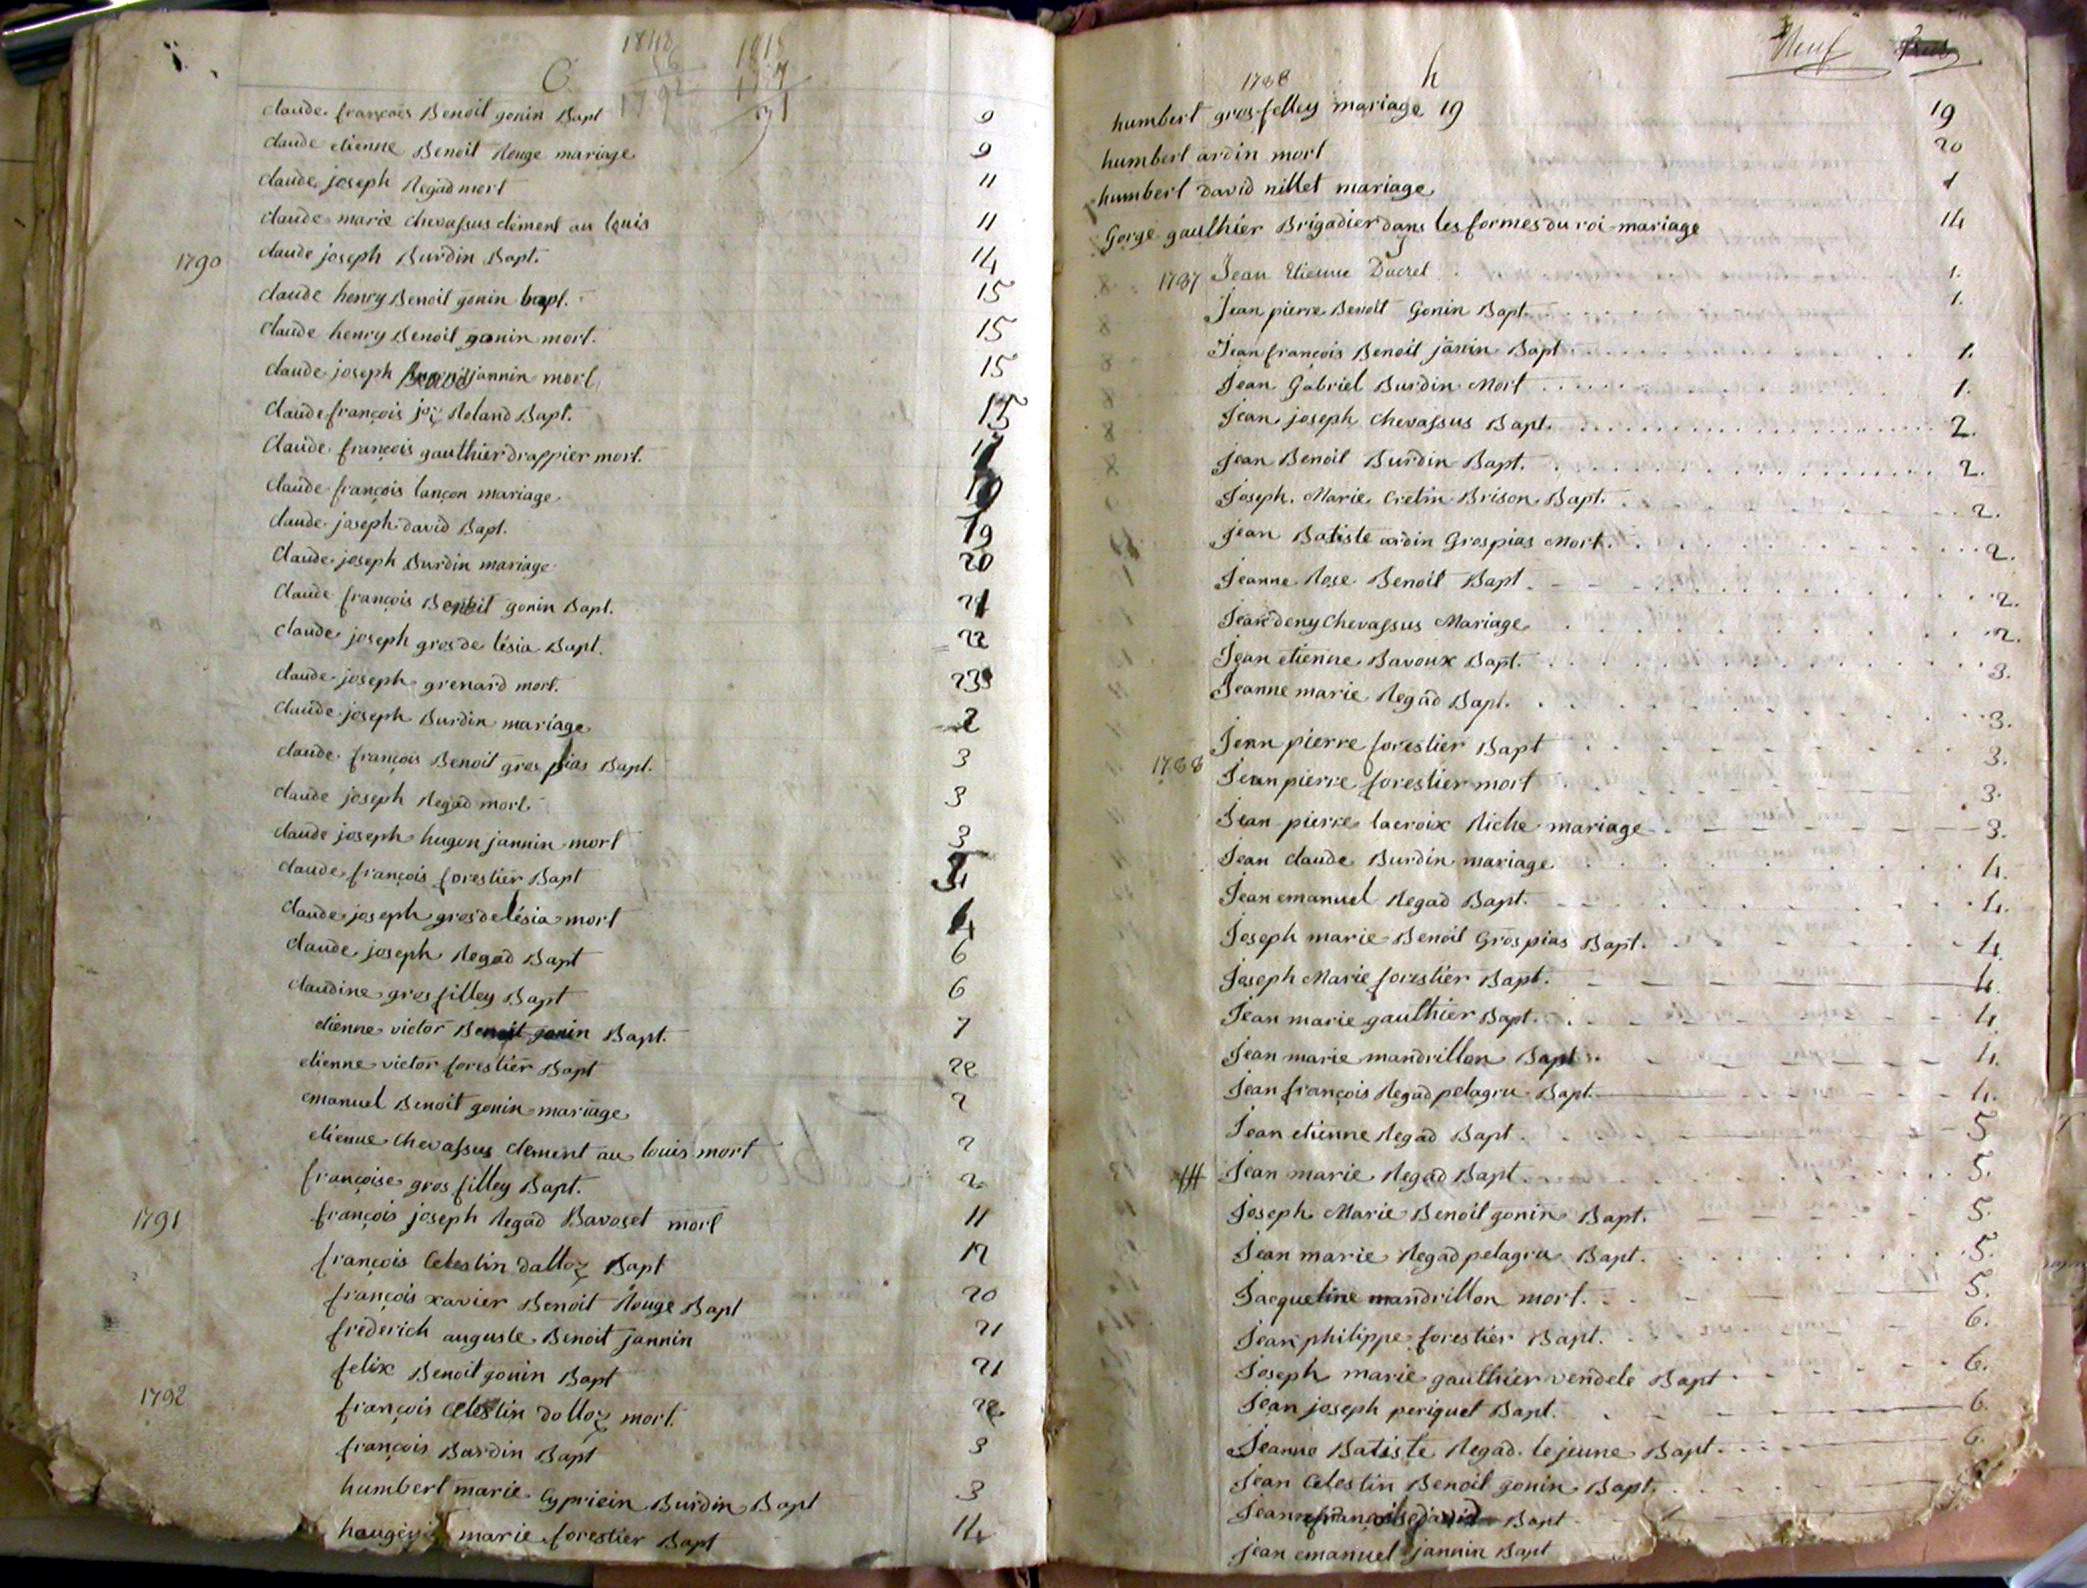 C
claude françois Benoit gonin Bapt 9
claude etienne Benoit Rouge mariage 9
claude joseph Regad mort 11
claude marie chevassus clement au louis 11
1790 claude joseph Burdin Bapt. 14
claude henry Benoit gonin bapt. 15
claude henry Benoit gonin mort. 15
claude joseph jannin mort 15
claude françois joz Roland Bapt. 15
Claude françois gauthier drappier mort. 17
claude françois lançon mariage 19
claude joseph david Bapt. 19
claude joseph Burdin mariage 20
Claude françois Benoit gonin Bapt. 21
claude joseph gros de lésia Bapt. 22
claude joseph grenard mort. 23
claude joseph Burdin mariage 2
claude françois Benoit gros pias Bapt. 3
claude joseph Regad mort 3
claude joseph hugon jannin mort 3
claude françois forestier Bapt
claude joseph gros de lésia mort 4
claude joseph Regad Bapt 6
claudine gros filley Bapt 6
etienne victor Benoit gonin Bapt. 7
etienne victor forestier Bapt 22
emanuel Benoit gonin mariage 2
etienne chevassus clement au louis mort 2
françoise gros filley Bapt. 2
1791 françois joseph Regad Bavoset mort 11
françois Celestin dalloz Bapt 12
françois xavier Benoit Rouge Bapt 20
fréderich auguste Benoit jannin 21
felix Benoit gonin Bapt 21
1792 françois Celestin dolloz mort. 22
françois Bardin Bapt 3
humbert marie Cypriein Burdin Bapt 3
marie forestier Bapt 14
Neuf
1788 h
humbert gros felley mariage 19 19
humbert ardin mort 20
humbert david nillet mariage 1
Gorge gauthier Brigadier dans les formes du roi mariage 14
1787 Jean Etienne Ducret 1.
Jean pierre Benoit Gonin Bapt. 1.
Jean françois Benoit janin Bapt 1.
Jean Gabriel Burdin Mort 1.
Jean joseph Chevassus Bapt. 2.
Jean Benoit Burdin Bapt. 2.
Joseph Marie Cretin Brison Bapt. 2.
jean Batiste ardin Grospias Mort. 2.
Jeanne Rose Benoit Bapt. 2.
Jean deny Chevassus Mariage 2.
Jean etienne Bavoux Bapt. 3.
Jeanne marie Regad Bapt. 3.
Jean pierre forestier Bapt 3.
1788 Jean pierre forestier mort 3.
Jean pierre lacroix Riche mariage 3.
Jean claude Burdin mariage 4.
Jean emanuel Regad Bapt. 4.
Joseph marie Benoit Grospias Bapt. 4.
Joseph Marie forestier Bapt. 4.
Jean marie gauthier Bapt. 4.
Jean marie mandrillon Bapt. 4.
Jean françois Regad pelagru Bapt. 4.
Jean etienne Regad Bapt. 5
Jean marie Regad Bapt. 5.
Joseph Marie Benoit gonin Bapt. 5.
Jean marie Regad pelagru Bapt. 5.
Jacqueline mandrillon mort. 5.
Jean philippe forestier Bapt. 6.
Joseph marie gauthier vendele Bapt. 6.
Jean joseph periquet Bapt. 6.
Jeanne Batiste Regad le jeune Bapt. 6.
Jean Celestin Benoit gonin Bapt.
Bapt
jean emanuel jannin Bapt